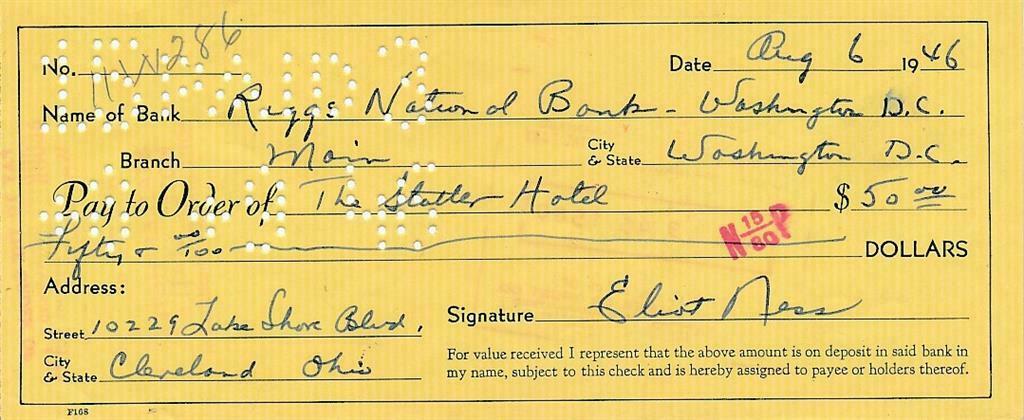 No. HW286
Date Aug 6 1946
Name of Bank Riggs National Bank - Washington D.C.
Branch Main City & State Washington D.C.
Pay to Order of The Statler Hotel $ 50 00
Fifty & 00/100 DOLLARS
N 15/80 P
Address:
Street 10229 Lake Shore Blvd.
Signature Eliot Ness
City & State Cleveland Ohio
For value received I represent that the above amount is on deposit in said bank in
my name, subject to this check and is hereby assigned to payee or holders thereof.
F168